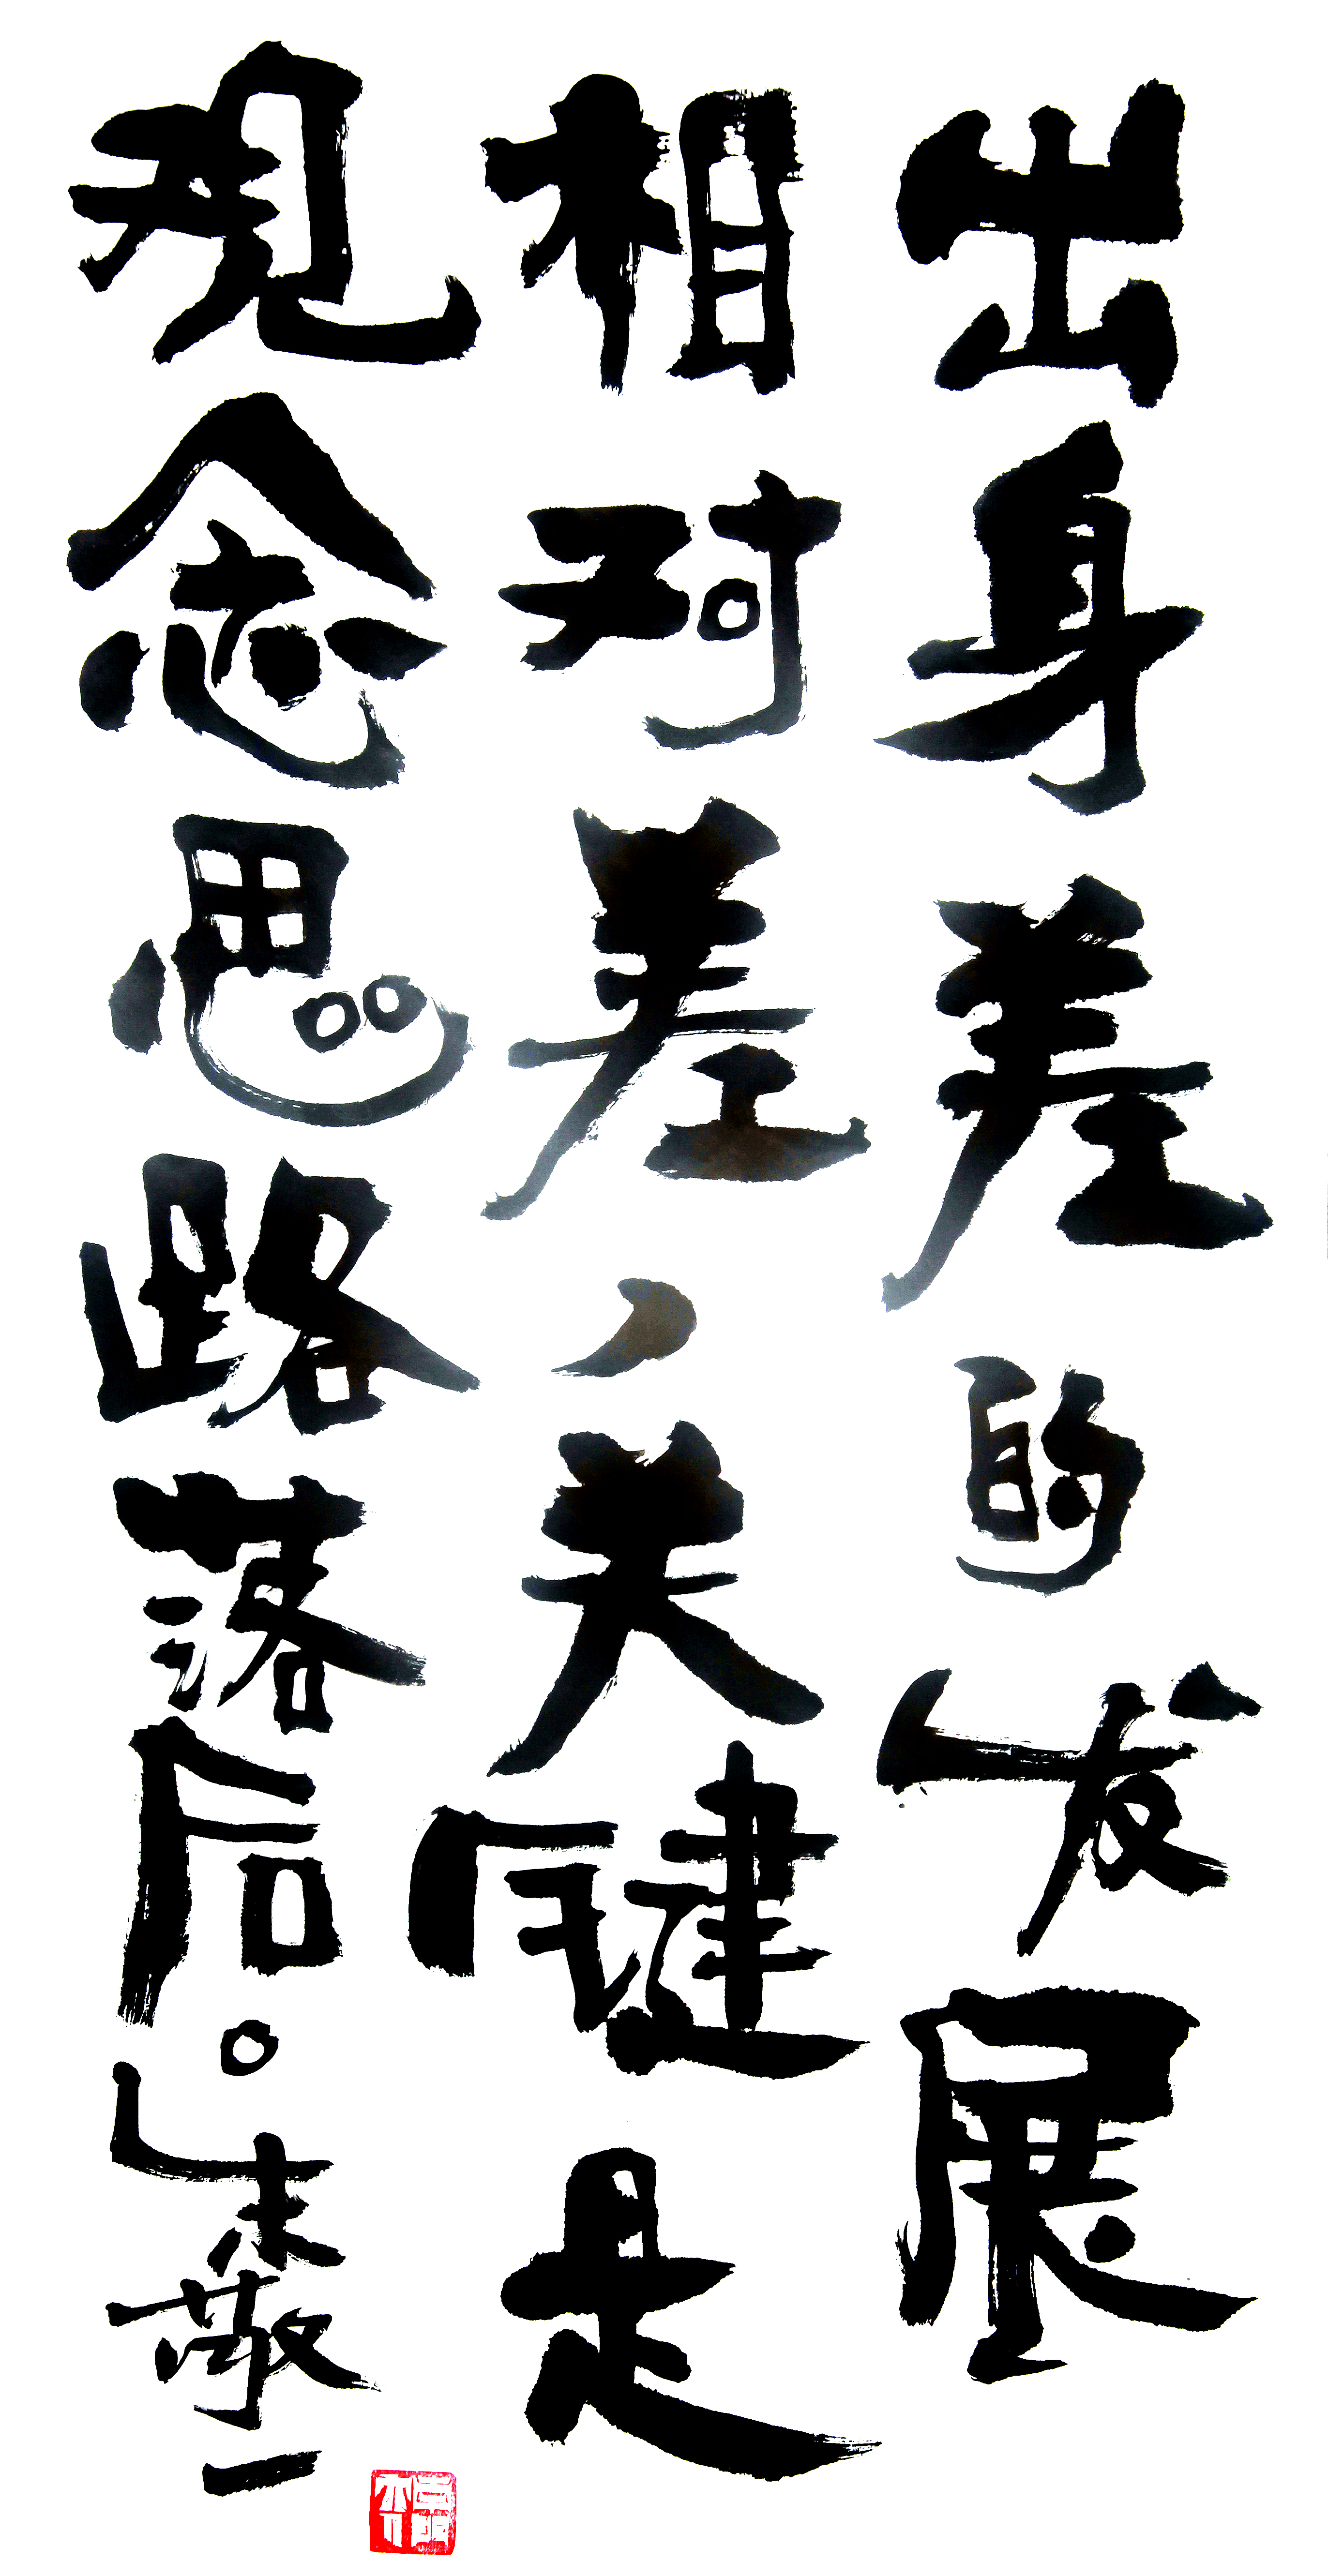 出身差的发展
相对差，关键是
观念思路落后。朱敬一